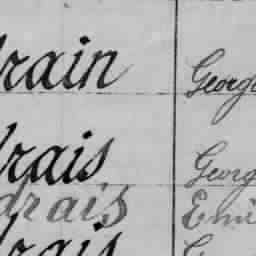 rain Georg
rais Georg
drais Emi
rais